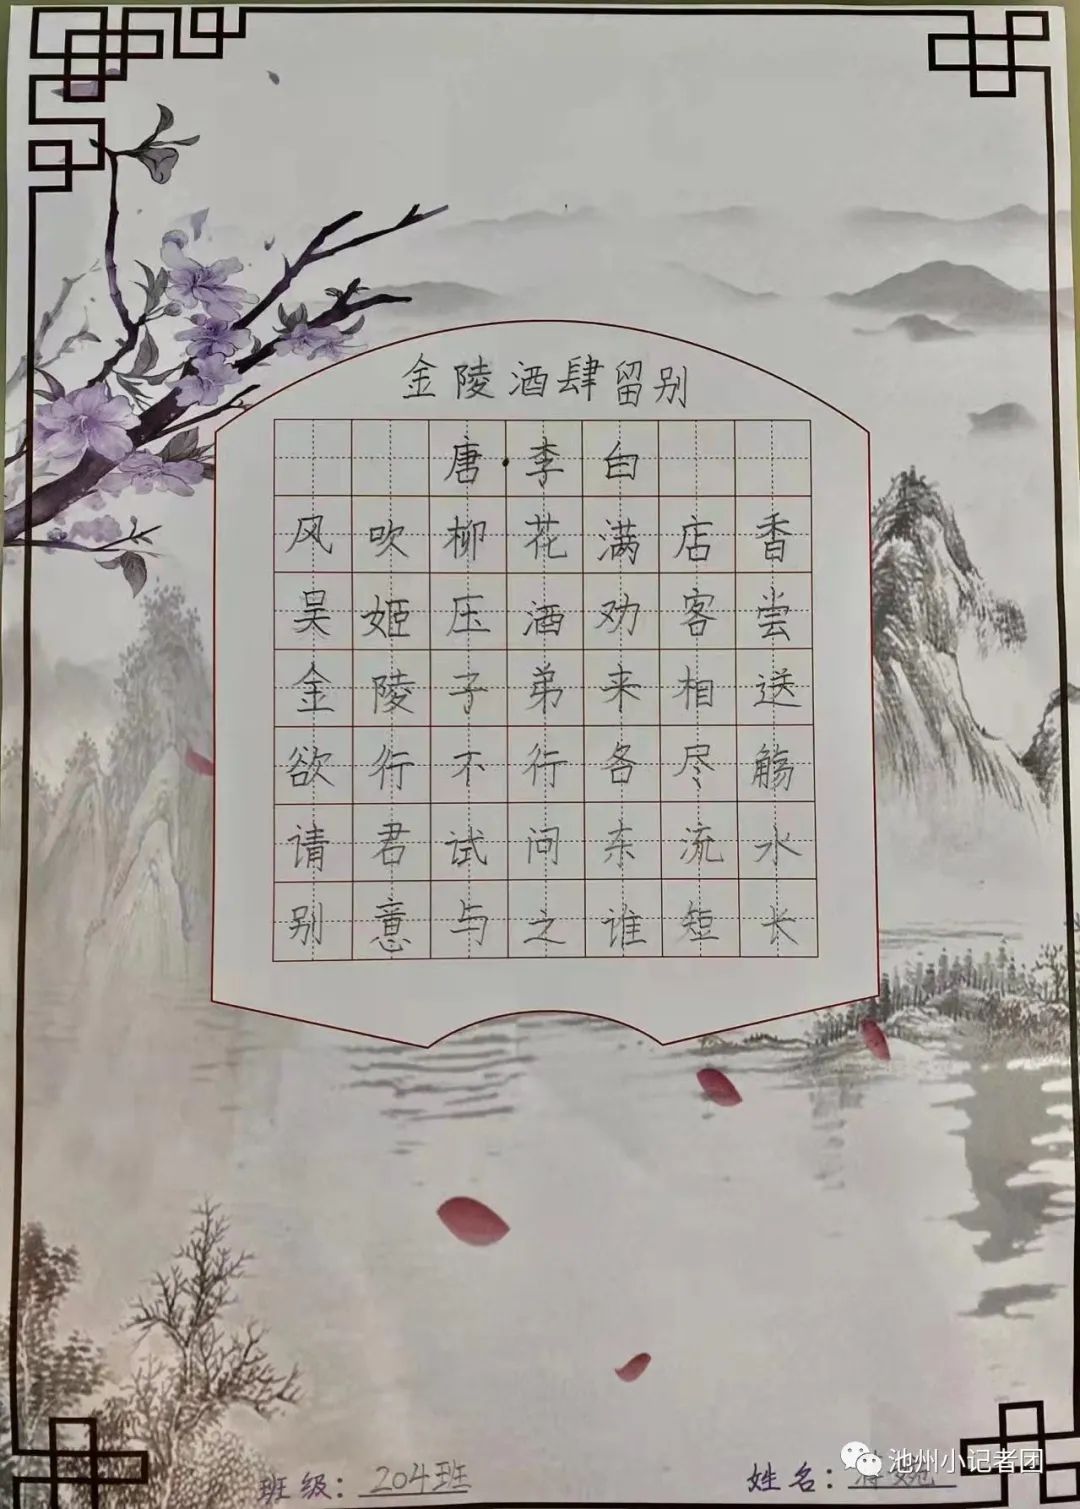 金陵酒肆留别
唐·李白
风吹柳花满店香
吴姬压酒劝客尝
金陵子弟来相送
欲行不行各尽觞
请君试问东流水
别意与之谁短长
班级：204班
姓名：
池州小记者团